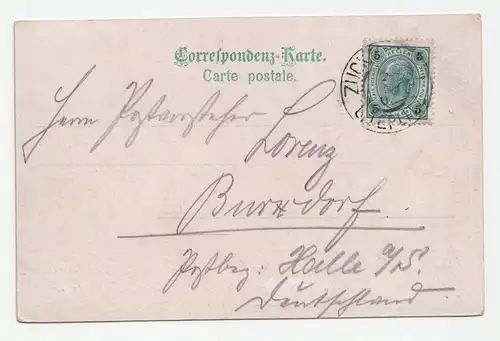 Correspondenz-Karte.
Carte postale.
5 5
Herrn Postvorsteher
Lorenz
Burxdorf
Postbez: Halle a/S.
Deutschland.